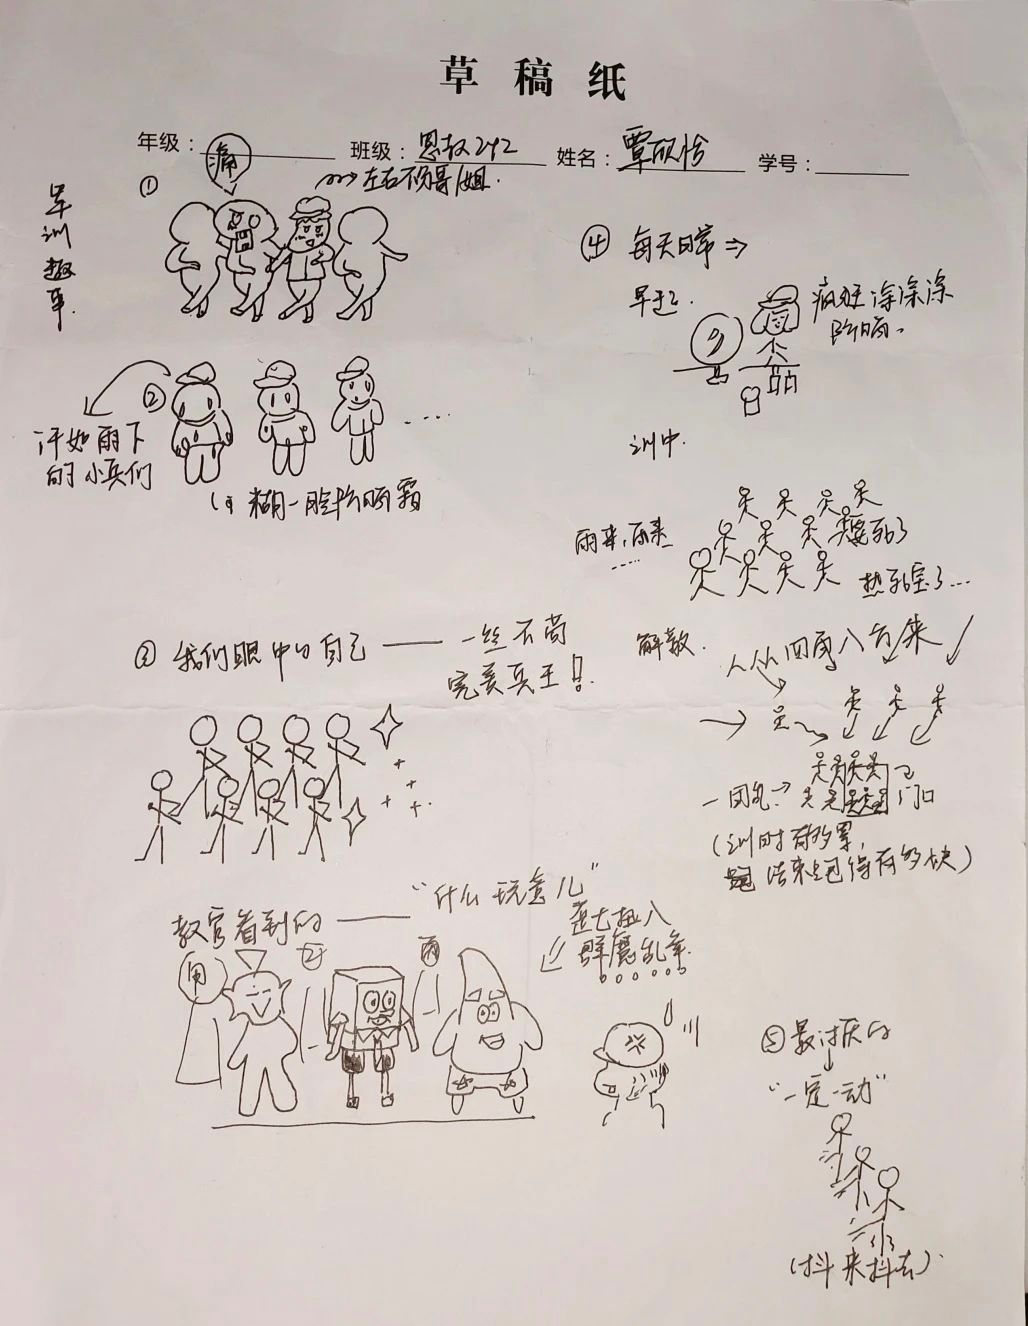 草 稿 纸
年级:
班级: 思教242
姓名: 覃欣怡
学号:
军训趣事.
①
痛
左右不分哥/姐.
②
汗如雨下
的小兵们
糊一脸防晒霜
....
③ 我们眼中的自己 —— 一丝不苟
完美兵王!
教官看到的 —— “什么玩意儿”
歪七扭八
群魔乱舞.
④ 每天日常 ⇒
早上:
疯狂涂涂涂
防晒.
训中.
雨来,雨来
....
要死了
热死宝了...
解散.
人从四面八方来
一团包 →
门口
(训时有多累,
结束跑得有多快)
⑤ 最讨厌的
“一定一动”
(抖来抖去)